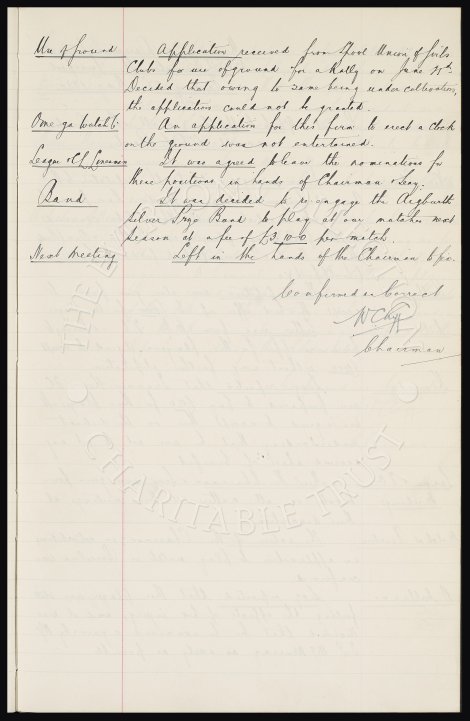 Use of Ground Application received from Lpool Union of Girls
Clubs for use of ground for a Rally on June 25th
Decided that owing to same being under cultivation,
the application could not be granted.
Omega Watch Co An application for this firm to erect a clock
on the ground was not entertained.
League & Ch. Linesmen It was agreed to leave the nominations for
these positions in hands of Chairman & Secy.
Band It was decided to re-engage the Aighurth
Silver Prize Band to play at our matches next
season at a fee of £3.10.0 per match.
Next Meeting Left in the hands of the Chairman to fix.
Confirmed as Correct
Chairman
THE
CHARITABLE TRUST